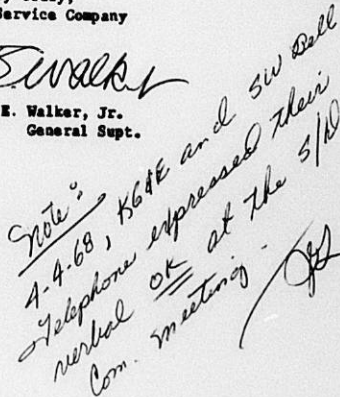 Service Company
E. Walker, Jr.
General Supt.
Note:
4-4-68, KG&E and SW Bell
Telephone expressed their
verbal OK at the S/D
Com. meeting.